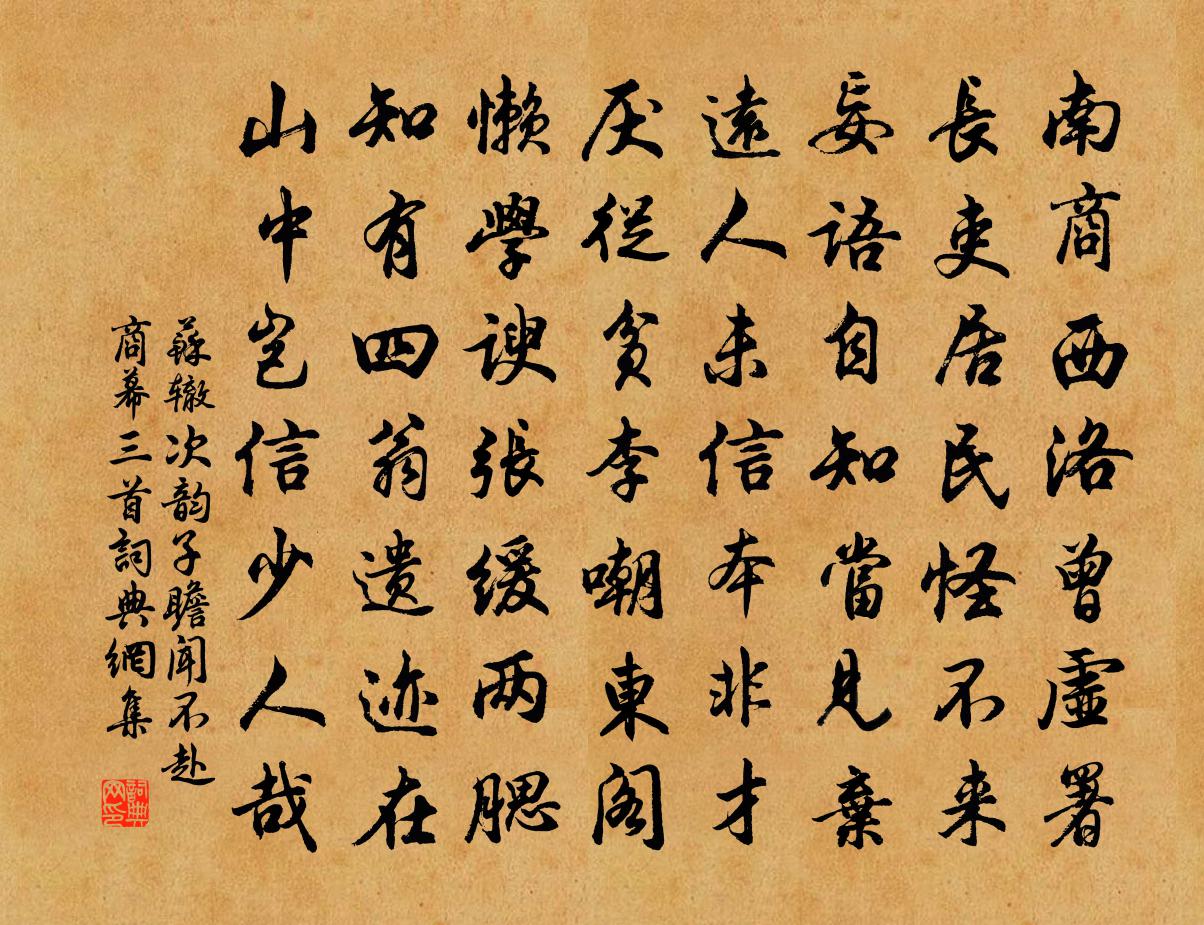 南商西洛曾虛署
長吏居民怪不来
妄語自知當見棄
遠人未信本非才
厌從貧李嘲東閣
懶學諛張缓两腮
知有四翁遗迹在
山中岂信少人哉
蘇辙次韵子瞻闻不赴
商幕三首詞典網集
詞典
网印